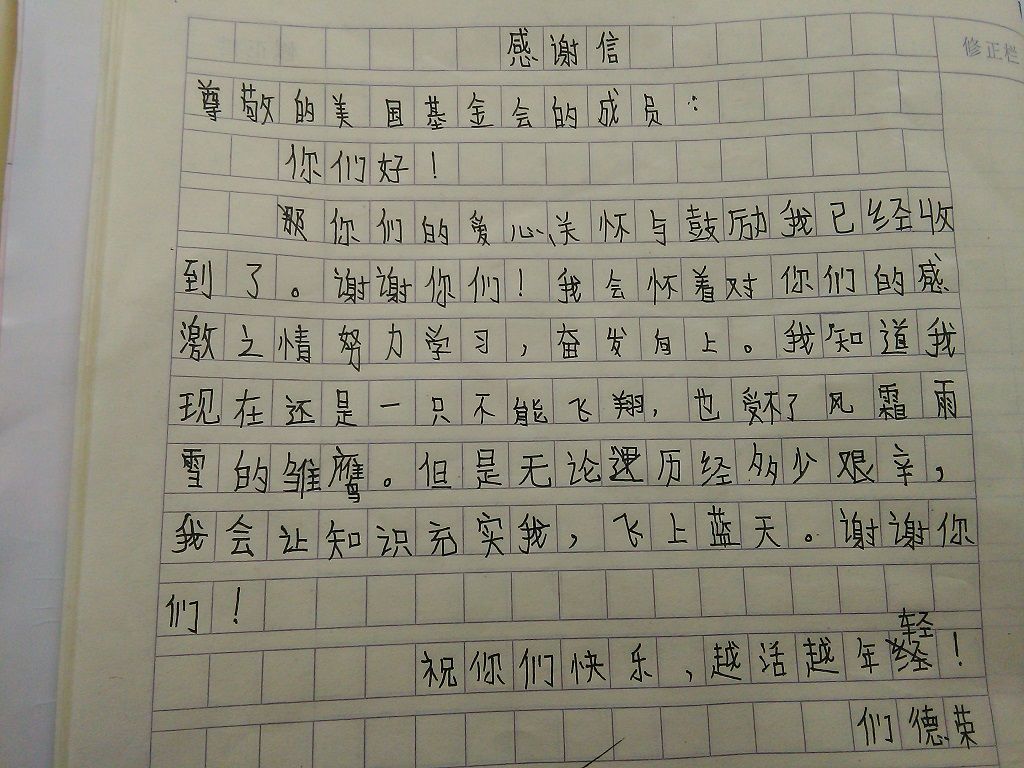 感谢信
修正栏
尊敬的美国基金会的成员:
你们好!
你们的爱心、关怀与鼓励我已经收
到了。谢谢你们!我会怀着对你们的感
激之情努力学习,奋发向上。我知道我
现在还是一只不能飞翔,也受不了风霜雨
雪的雏鹰。但是无论还历经多少艰辛,
我会让知识充实我,飞上蓝天。谢谢你
们!
祝你们快乐,越活越年轻!
们德荣